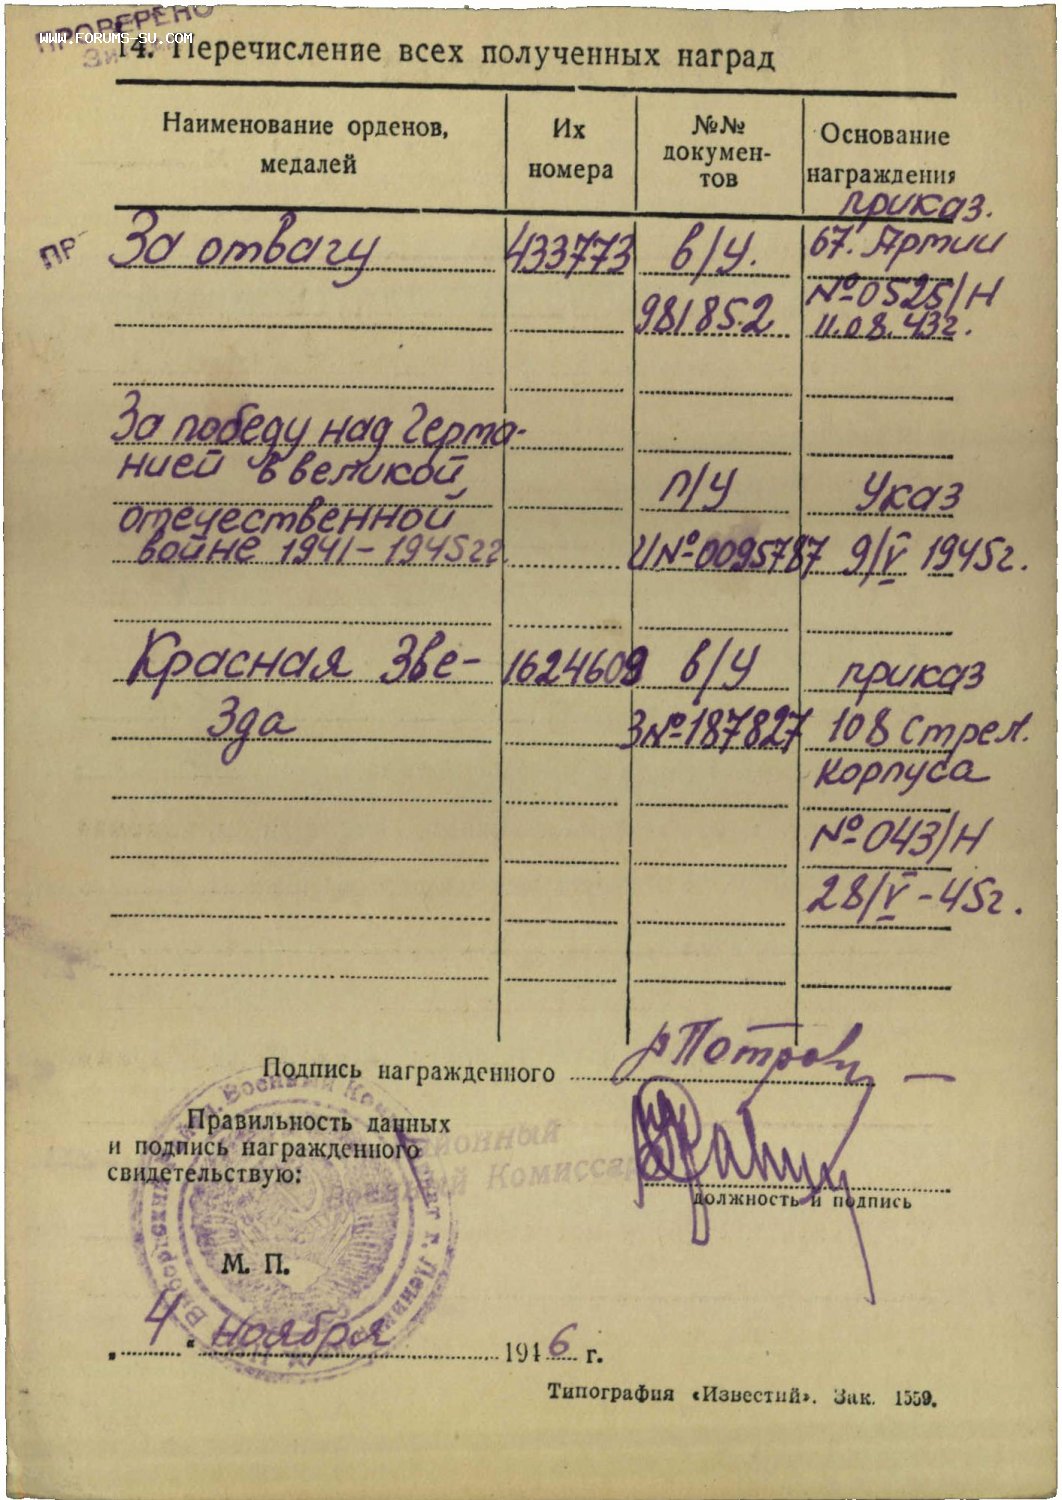 ПРОВЕРЕНО
WWW.FORUMS-SU.COM
14. Перечисление всех полученных наград
Наименование орденов, медалей
Их номера
№№ докумен-тов
Основание награждения
приказ.
ПР
За отвагу 433773 в/у. 67. Армии
981852 №0525/н
11.08.43г.
За победу над Герма-
нией в великой п/у Указ
отечественной
войне 1941-1945гг. И№0095787 9/V 1945г.
Красная Зве- 1624609 в/у приказ
зда З№187827 108 Стрел.
корпуса
№043/н
28/V-45г.
Подпись награжденного
Правильность данных
и подпись награжденного
свидетельствую:
Районный
Военный Комиссар
должность и подпись
М. П.
„4“ ноября 1946 г.
Типография «Известий». Зак. 1559.